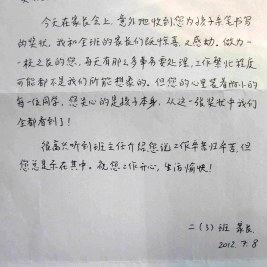 今天在家长会上，意外地收到您为孩子亲笔书写
的奖状，我和全班的家长们既惊喜又感动。做为一
校之长的您，每天有那么多事务要处理，工作繁忙程度
可能都不是我们所能想象的。但您的心里装着
每一位同学，您关心的是孩子本身，从这一张奖状中我们
全都看到了！
很高兴听到班主任介绍您说工作辛苦归辛苦，但
您总是乐在其中。祝您工作开心，生活愉快！
二（3）班 家长
2012.7.8